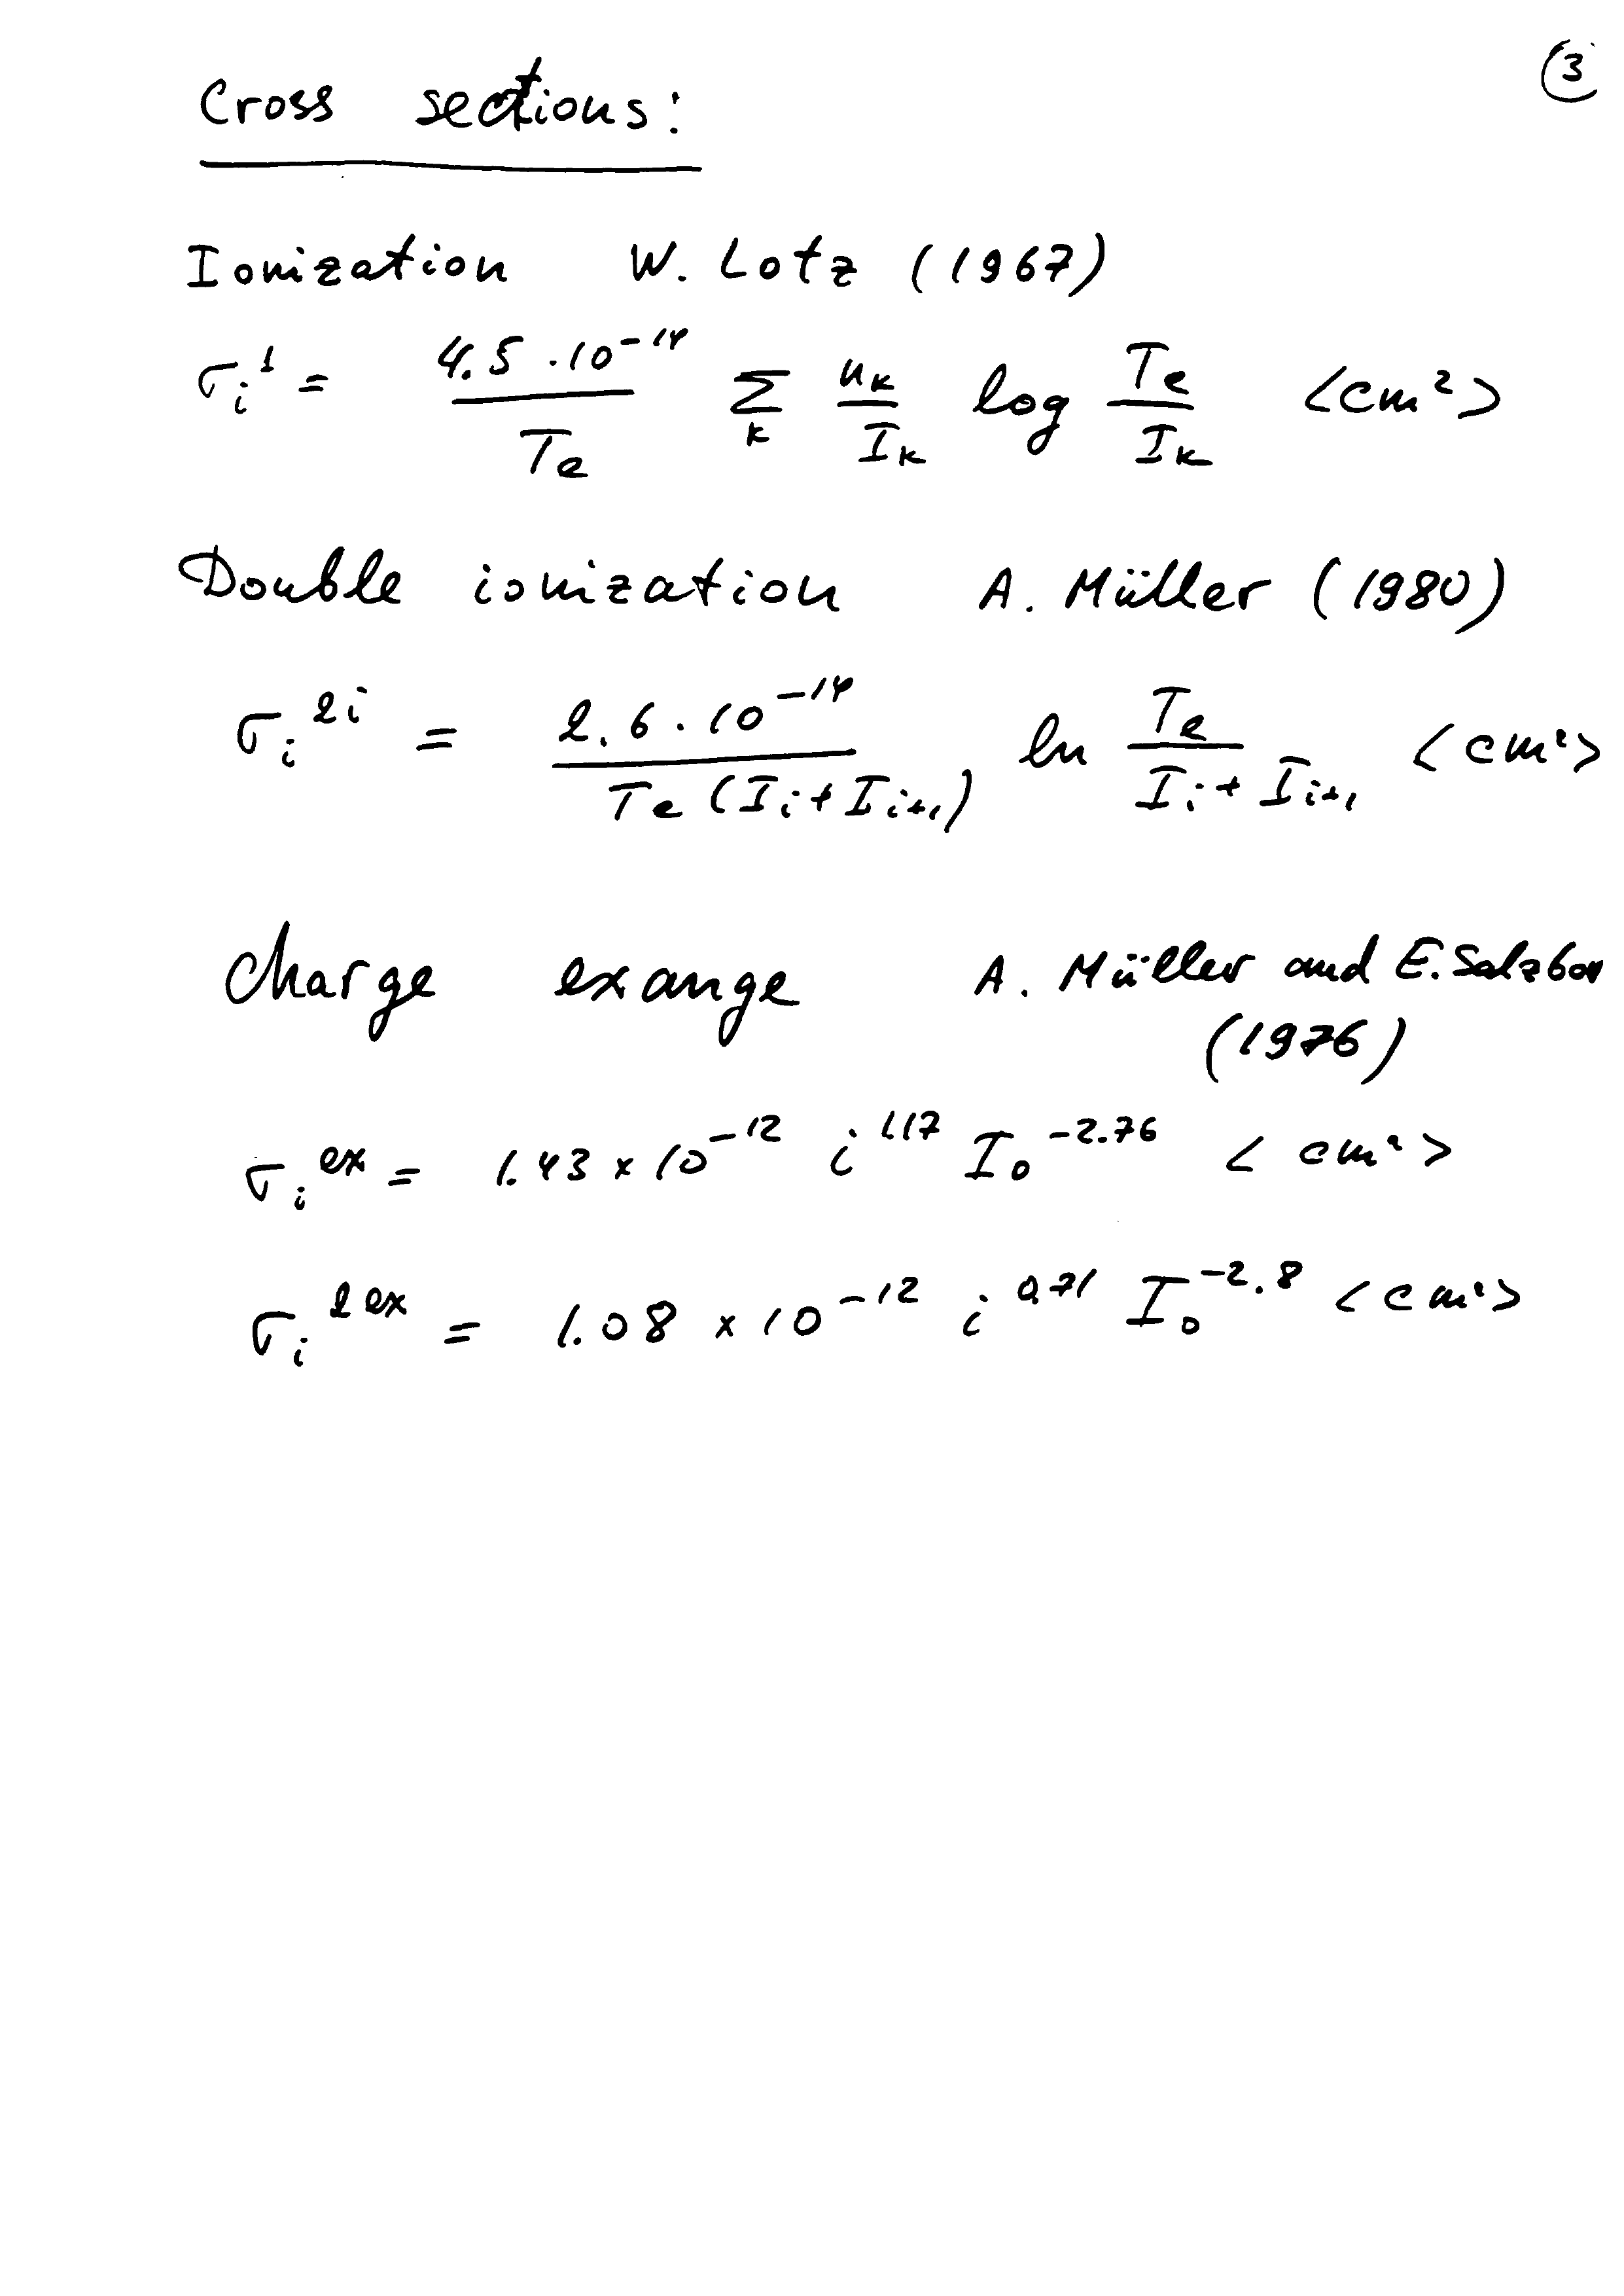 3
Cross sections:
Ionization W. Lotz (1967)
σᵢ¹ = 4.5 · 10⁻¹⁴ / Te Σ_k n_k / I_k log Te / I_k <cm²>
Double ionization A. Müller (1980)
σᵢ²ⁱ = 2.6 · 10⁻¹⁴ / Te (Iᵢ + Iᵢ₊₁) ln Te / Iᵢ + Iᵢ₊₁ <cm²>
Charge exange A. Müller and E. Salzbor
(1976)
σᵢ^ex = 1.43 × 10⁻¹² i^1.17 I₀^-2.76 <cm²>
σᵢ^2ex = 1.08 × 10⁻¹² i^0.71 I₀^-2.8 <cm²>